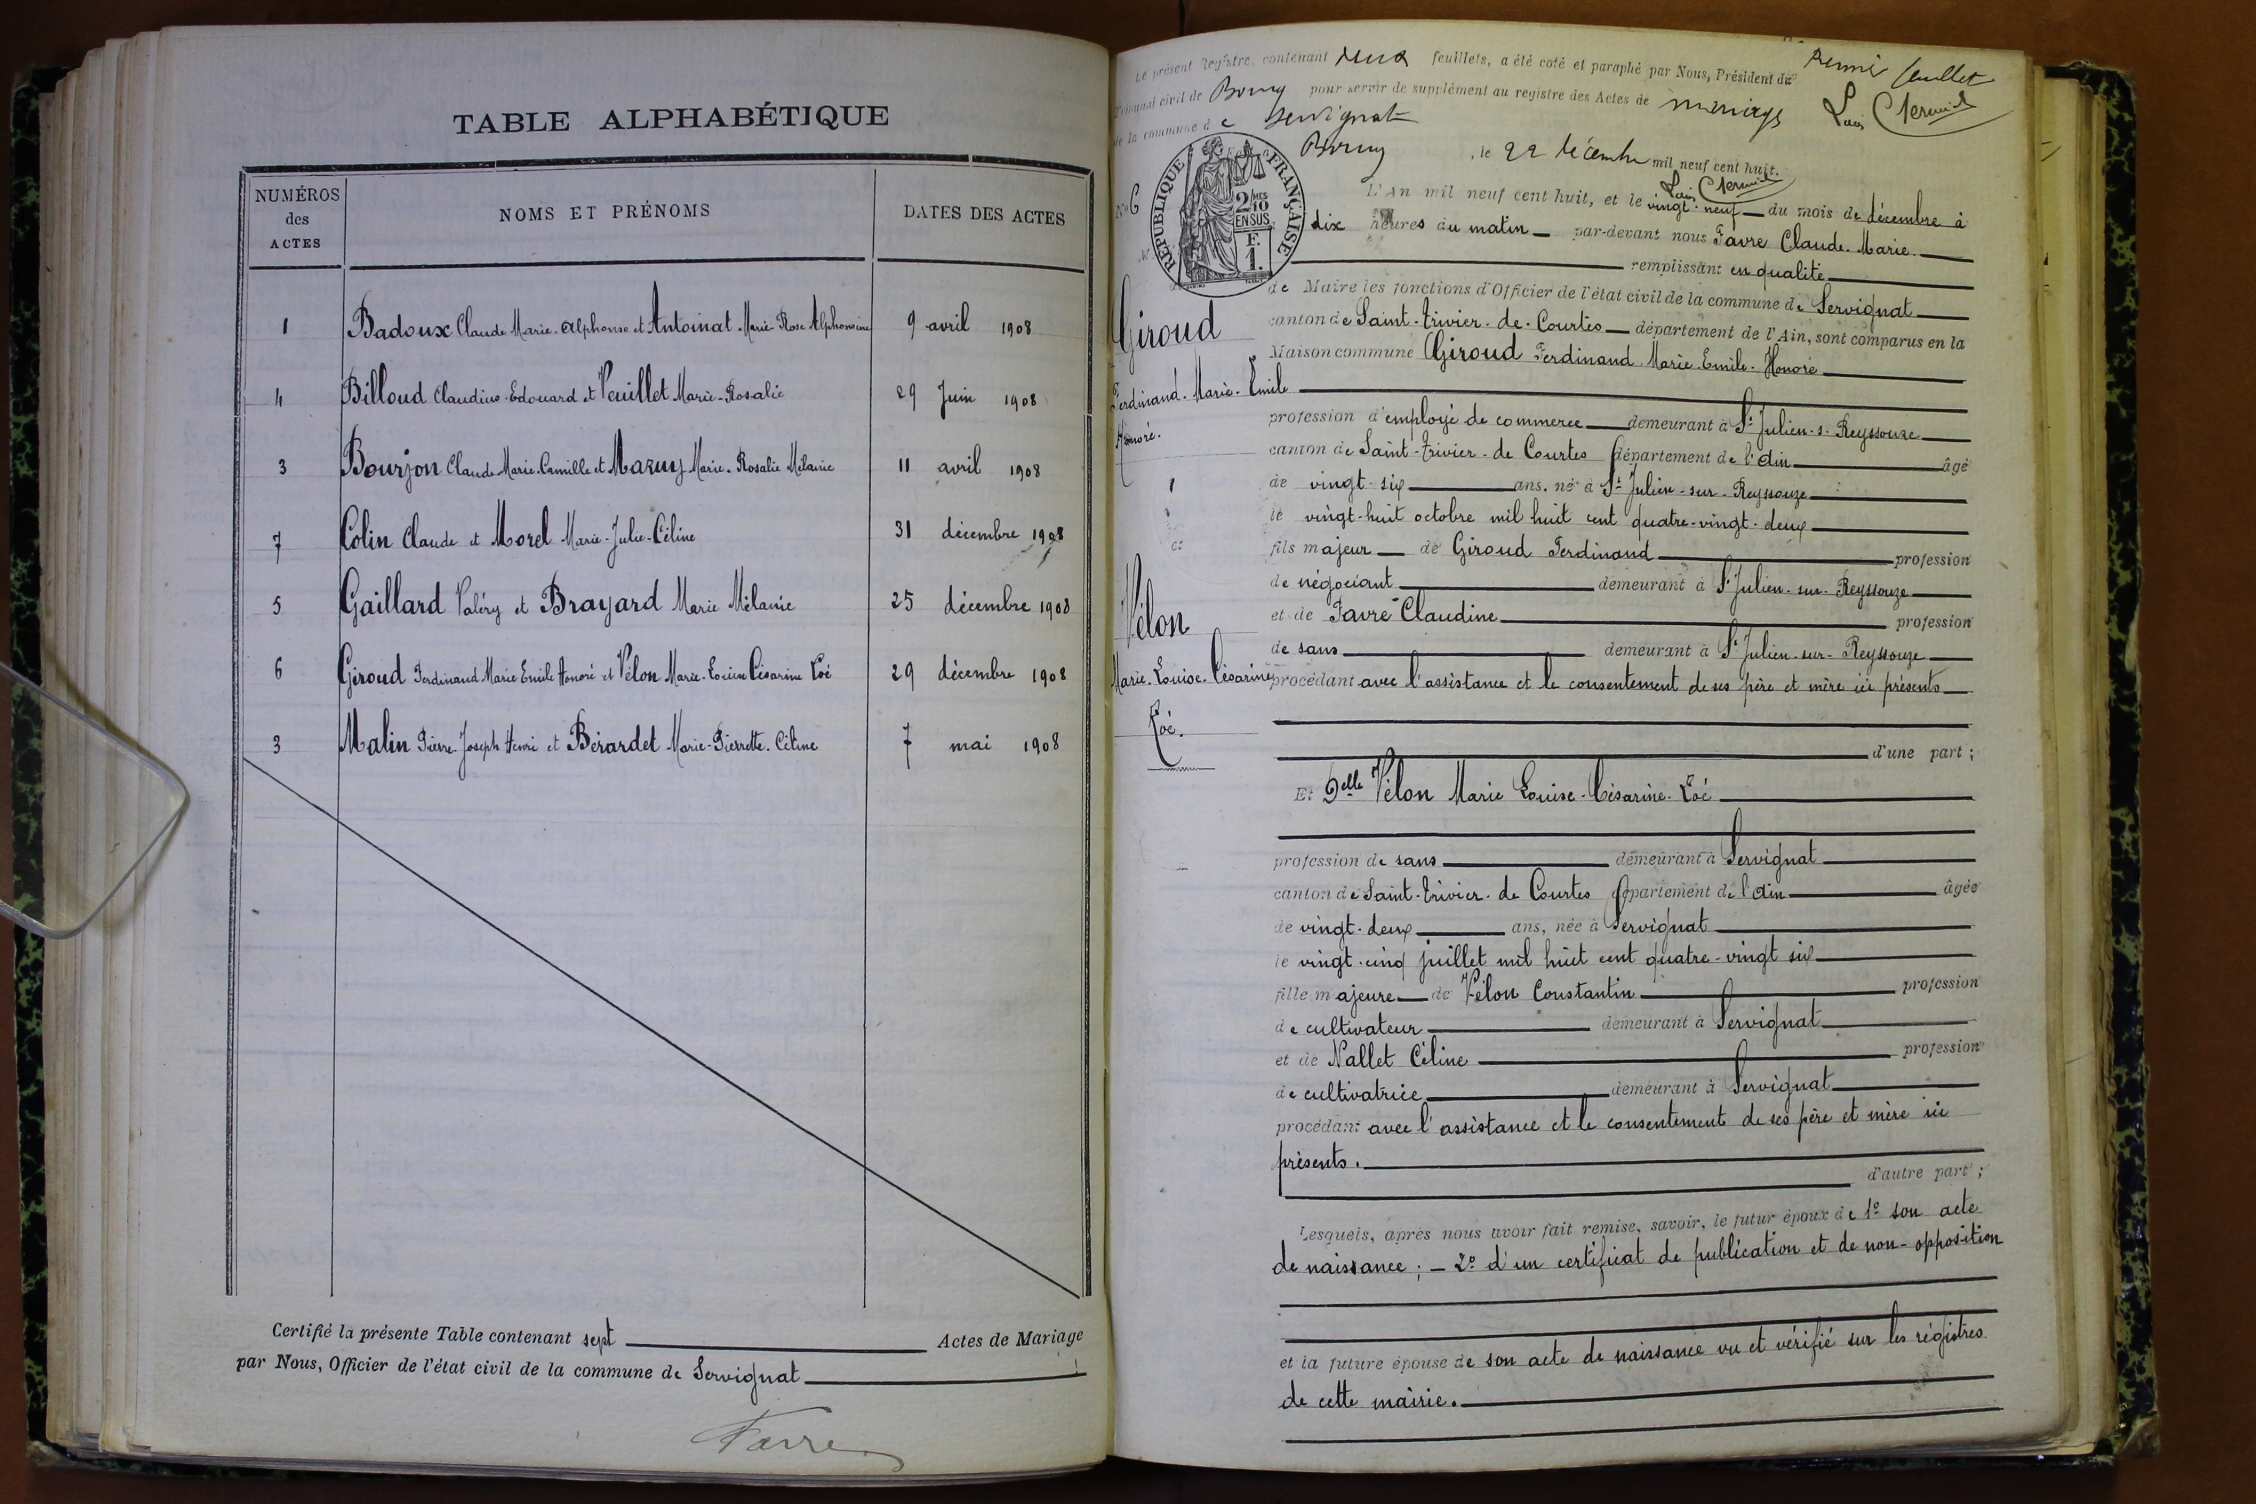 TABLE ALPHABÉTIQUE
NUMÉROS des ACTES
NOMS ET PRÉNOMS
DATES DES ACTES
1 Badoux Claude Marie-Alphonse et Antoinat Marie Rose Alphonsine 9 avril 1908
4 Billoud Claudius-Edouard et Veuillet Marie-Rosalie 29 Juin 1908
3 Bourjon Claude-Marie-Camille et Mazuy Marie-Rosalie Mélanie 11 avril 1908
7 Colin Claude et Morel Marie-Julie-Céline 31 décembre 1908
5 Gaillard Valéry et Brayard Marie Mélanie 25 décembre 1908
6 Giroud Ferdinand Marie Emile Honoré et Vélon Marie-Louise Césarine Zoé 29 décembre 1908
3 Malin Pierre-Joseph Henri et Bérardet Marie-Pierrette-Céline 7 mai 1908
Certifié la présente Table contenant sept Actes de Mariage
par Nous, Officier de l'état civil de la commune de Servignat
Favre
Premier feuillet
Le présent Registre, contenant deux feuillets, a été coté et paraphé par Nous, Président du
Tribunal civil de Bourg pour servir de supplément au registre des Actes de mariage
de la commune de Servignat
Bourg, le 22 décembre mil neuf cent huit.
RÉPUBLIQUE FRANÇAISE
2/10 EN SUS
F. 1.
N° 6
L'An mil neuf cent huit, et le vingt-neuf du mois de décembre à
dix heures du matin par-devant nous Favre Claude-Marie
remplissant en qualité
de Maire les fonctions d'Officier de l'état civil de la commune de Servignat
canton de Saint-Trivier-de-Courtes département de l'Ain, sont comparus en la
Maison commune Giroud Ferdinand Marie-Emile-Honoré
Giroud
Ferdinand-Marie-Emile
Honoré.
profession d'employé de commerce demeurant à St Julien-s-Reyssouze
canton de Saint-Trivier-de Courtes département de l'Ain âgé
de vingt-six ans, né à St Julien-sur-Reyssouze
le vingt-huit octobre mil huit cent quatre-vingt-deux
fils majeur de Giroud Ferdinand profession
de négociant demeurant à St Julien-sur-Reyssouze
et de Favre Claudine profession
de sans demeurant à St Julien-sur-Reyssouze
procédant avec l'assistance et le consentement de ses père et mère ici présents
d'une part ;
Vélon
Marie-Louise-Césarine
Zoé.
Et Delle Vélon Marie Louise-Césarine-Zoé
profession de sans demeurant à Servignat
canton de Saint-Trivier-de Courtes département de l'Ain âgée
de vingt-deux ans, née à Servignat
le vingt-cinq juillet mil huit cent quatre-vingt six
fille majeure de Vélon Constantin profession
de cultivateur demeurant à Servignat
et de Nallet Céline profession
de cultivatrice demeurant à Servignat
procédant avec l'assistance et le consentement de ses père et mère ici
présents.
d'autre part ;
Lesquels, après nous avoir fait remise, savoir, le futur époux de 1° son acte
de naissance ; – 2° d'un certificat de publication et de non-opposition
et la future épouse de son acte de naissance vu et vérifié sur les régistres
de cette mairie.